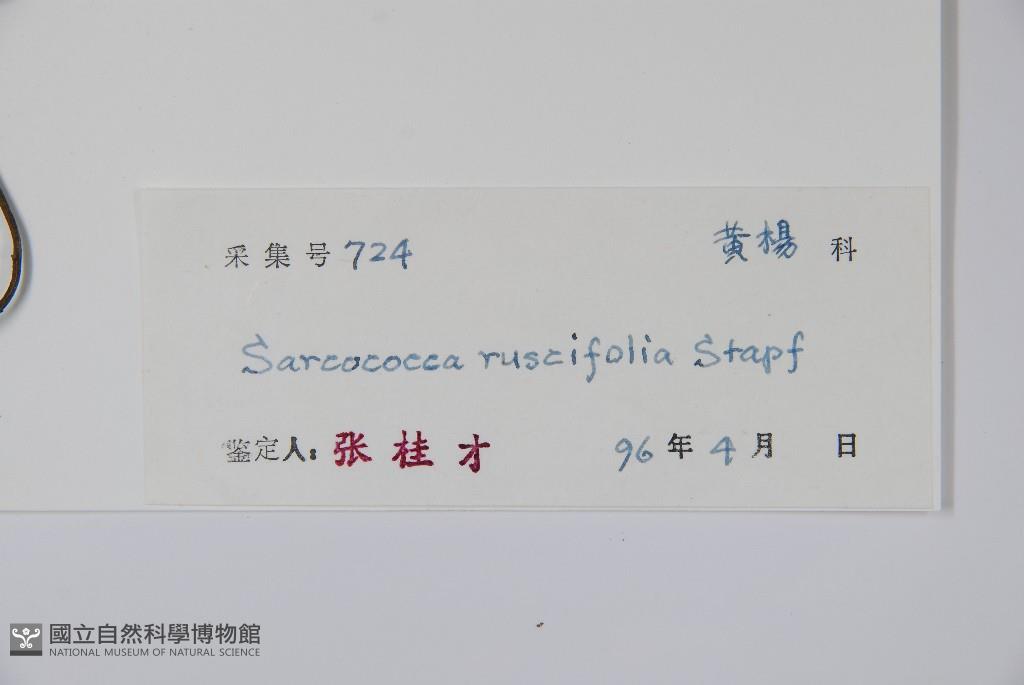 采集号 724 黄楊 科
Sarcococca ruscifolia Stapf
鉴定人: 张桂才 96年4月 日
國立自然科學博物館
NATIONAL MUSEUM OF NATURAL SCIENCE